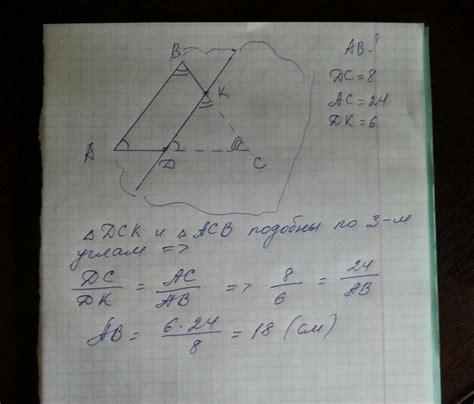 B
K
A
D
C
AB - ?
DC = 8
AC = 24
DK = 6
△ DCK и △ ACB подобны по 3-м
углам =>
DC/DK = AC/AB => 8/6 = 24/AB
AB = 6·24/8 = 18 (см)